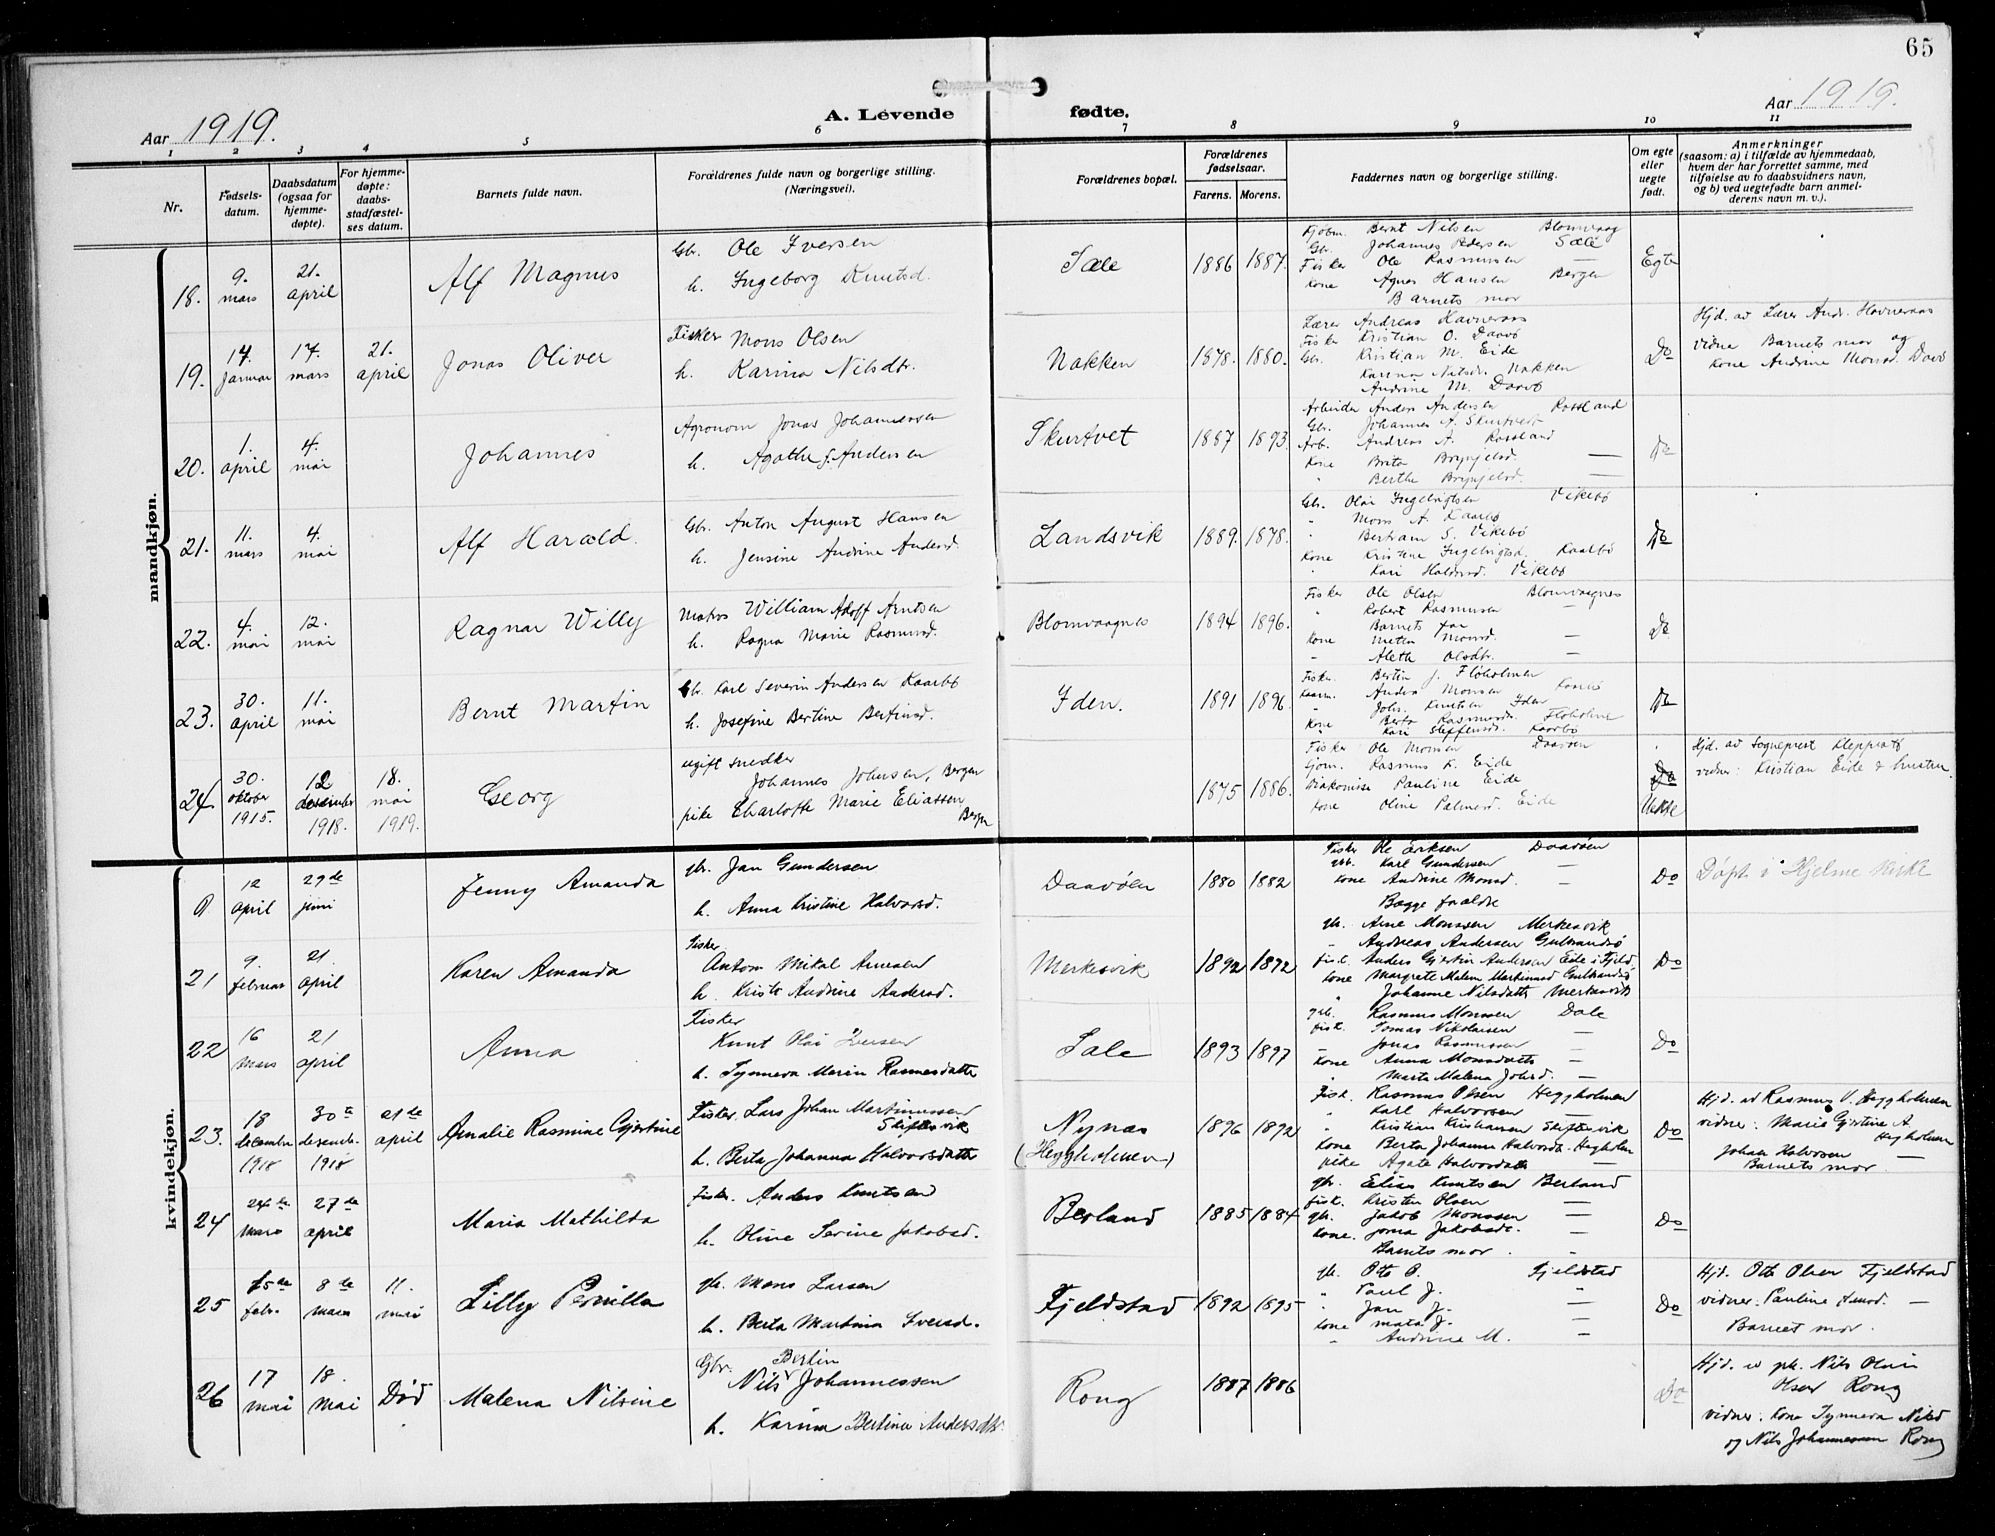 65
Aar 1919.
A. Levende fødte.
Aar 1919.
1 2 3 4 5 6 7 8 9 10 11
Nr.
Fødselsdatum.
Daabsdatum (ogsaa for hjemmedøpte).
For hjemmedøpte: daabsstadfæstelses datum.
Barnets fulde navn.
Forældrenes fulde navn og borgerlige stilling. (Næringsvei).
Forældrenes bopæl.
Forældrenes fødselsaar.
Farens. Morens.
Faddernes navn og borgerlige stilling.
Om egte eller uegte født.
Anmerkninger
(saasom: a) i tilfælde av hjemmedaab,
hvem der har forrettet samme, med
tilføielse av to daabsvidners navn,
og b) ved uegtefødte barn anmel-
derens navn m. v.).
mandkjøn.
18. 9. mars 21. april Alf Magnus
Gbr. Ole Iversen
h. Ingeborg Knutsd.
Sæle 1886 1887.
Kjøbm. Bernt Nilsen Blomvaag
Gbr. Johannes Pedersen Sæle
Fisker Ole Rasmussen —
Kone Agnes Hansen Bergen
Barnets mor
Egte
19. 14. januar 17. mars 21. april Jonas Oliver
Fisker Mons Olsen
h. Karina Nilsdtr.
Nakken 1878. 1880.
Lærer Andreas Havneraas
Fisker Kristian O. Daavø
Gbr. Kristian M. Eide
Karina Nilsdr. Nakken
Andrine M. Daavø
Do
Hjd. av Lærer Andr. Havneraas
vidne Barnets mor og
Kone Andrine Monsd. Davø
20. 1. april 4. mai Johannes
Agronom Jonas Johannessen
h. Agathe J. Andersen
Skurtvet 1887 1893.
Arbeider Anders Andersen Rossland
Gbr. Johannes A. Skurtvedt
Arb. Andreas A. Rossland
Kone Brita Brynjelsd. —
" Berthe Brynjelsd. —
Do
21. 11. mars 4. mai Alf Harald.
Gbr. Anton August Hansen
h. Jensine Andrine Andersd.
Landsvik 1889. 1878.
Gbr. Olai Ingebrigtsen Vikebø
" Mons A. Kaarbø
" Bertram S. Vikebø
Kone Kristine Ingebrigtsd. Kaarbø
" Kari Haldorsd. Vikebø
Do
22. 4. mai 12. mai Ragnar Willy
Matros William Adolf Arntsen
h. Ragna Marie Rasmusd.
Blomvaagnes 1894 1896.
Fisker Ole Olsen Blomvaagnes
" Robert Rasmussen —
Barnets far
Kone Meten Monsd. —
" Aleth Olsdtr. —
Do
23. 30. april 11. mai Bernt Martin
Gbr. Karl Severin Andersen Kaarbø
h. Josefine Bertine Bertinsd.
Iden. 1891 1896.
Fisker Bertin J. Fløholmen
Anders Monsen Kaarbø
" Johs. Knutsen Iden
Kone Berta Rasmusdr. Floholme
" Kari Steffensd. Kaarbø
Do
24. 30. oktober 1915. 12 desember 1918. 18. mai 1919. Georg
ugift snedker
Johannes Johnsen, Bergen
pike Charlotte Marie Eliassen
Bergen
1875 1886.
Fisker Ole Monsen Daavøen
Gjom. Rasmus K. Eide
Diakonisse Pauline Eide
Kone Oline Palmesd. Eide
Do
Uekte
Hjd. av Sogneprest Kleppestø
vidner: Kristian Eide & hustru
kvindekjøn.
9 12 april 29de juni Jenny Amanda
gbr. Jan Gundersen
h. Anna Kristine Halvorsd.
Daavøen 1880 1882
Fisker Ole Eriksen Daavøen
gbr. Karl Gundersen —
Kone Andrine Monsd. —
Begge foreldre
Do
Døpt i Hjelme Kirke
21 9. februar 21. april Karen Amanda
Fisker
Anton Mikal Arnesen
h. Kristi Andrine Andersd.
Merkesvik 1892 1892
gbr. Arne Monssen Merkesvik
" Andreas Andersen Gulbrandsø
fisk. Anders Gjertin Andersen Eide i Fjeld
Kone Margrete Malene Martinusd Gulbrandsø
" Johanne Nilsdatter Merkesvik
Do
22 16 Mars 21 april Anna
Fisker
Knut Olai Iversen
h. Synneva Marin Rasmusdatter
Sale 1893 1897
gbr. Rasmus Monssen Dale
fisk. Tomas Nikolaisen —
" Jonas Rasmussen —
Kone Anna Monsdatter —
" Marta Malena Johsd. —
Do
23. 18 december 1918 30te desemb. 1918 21de april Amalie Rasmine Gjertine
Fisker. Lars Johan Martinussen
Skiftesvik
h. Berta Johanna Halvorsdatter
Nynæs
(Heggholmen)
1896 1892
Fisk. Rasmus Olsen Heggholmen
" Karl Halvorsen —
" Kristian Kristiansen Skiftesvik
Kone Berta Johanne Halvorsd. Hegholm
pike Agate Halvorsdatter —
Do
Hjd. ad Rasmus O. Heggholmen
vidner: Marie Gjertine A
Hegholmen
Johan Halvorsen —
Barnets mor.
24 24de Mars 27de april Maria Mathilda
Fisker. Anders Knutsen
h. Oline Serine Jakobsd.
Berland 1885 1884
gbr. Elias Knutsen Berland
fisk. Kristen Olsen —
gbr. Jakob Monssen —
Kone. Jorna Jakobsdr. —
Barnets mor. "
Do
25 15de febr. 8de mars 11. mai Lilly Pernilla
gbr. Mons Larsen
h. Berta Martina Iversd.
Fjeldstad 1892 1895
gbr. Otto O. Fjeldstad
" Paul J. "
" Jan J. —
Kone Mata J. —
" Andrine M. —
Do
Hjd. Otto Olsen Fjeldstad
vidner: Pauline Amsd. —
Barnets mor.
26 17 mai 18. mai Død Malena Nilsine
Gbr. Nils Bertin Johannessen
h. Karina Bertine Andersdtr.
Rong 1887 1886
Do
Hjd. av gbr. Nils Olai
Olsen Rong
vidner: Kone Synneva Nilsd
og Nils Johannessen Rong